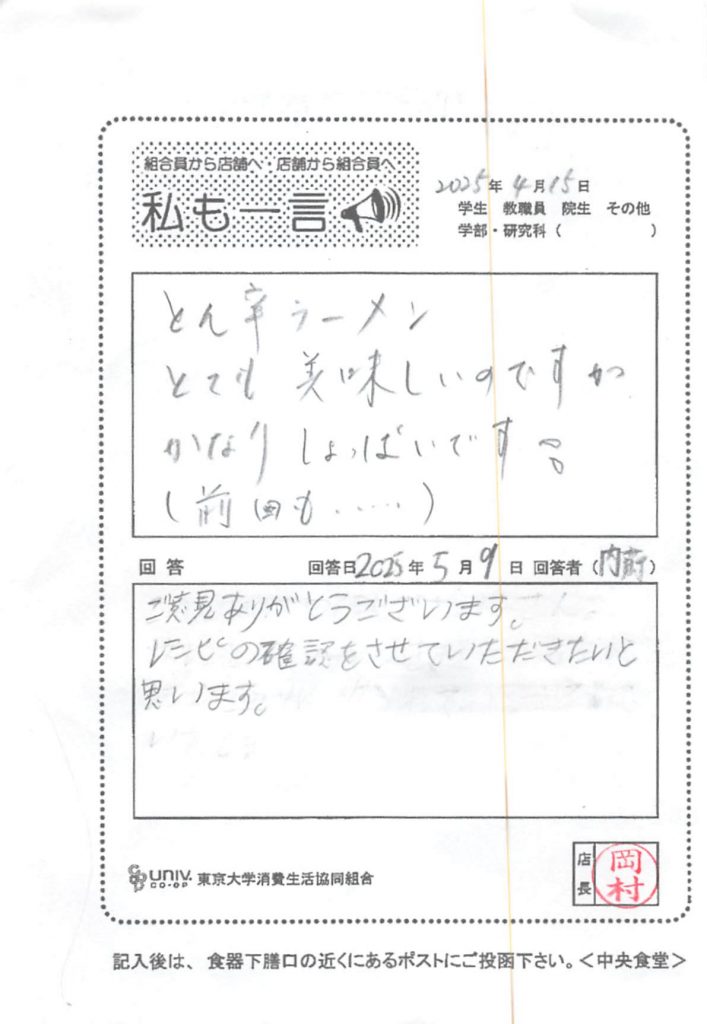 組合員から店舗へ・店舗から組合員へ
私も一言
2025年4月15日
学生 教職員 院生 その他
学部・研究科( )
とん辛ラーメン
とても美味しいのですが
かなりしょっぱいです。
(前回も……)
回答 回答日2025年5月9日 回答者(内前)
ご意見ありがとうございます。
レシピの確認をさせていただきたいと
思います。
UNIV. CO-OP 東京大学消費生活協同組合
店長 岡村
記入後は、食器下膳口の近くにあるポストにご投函下さい。<中央食堂>